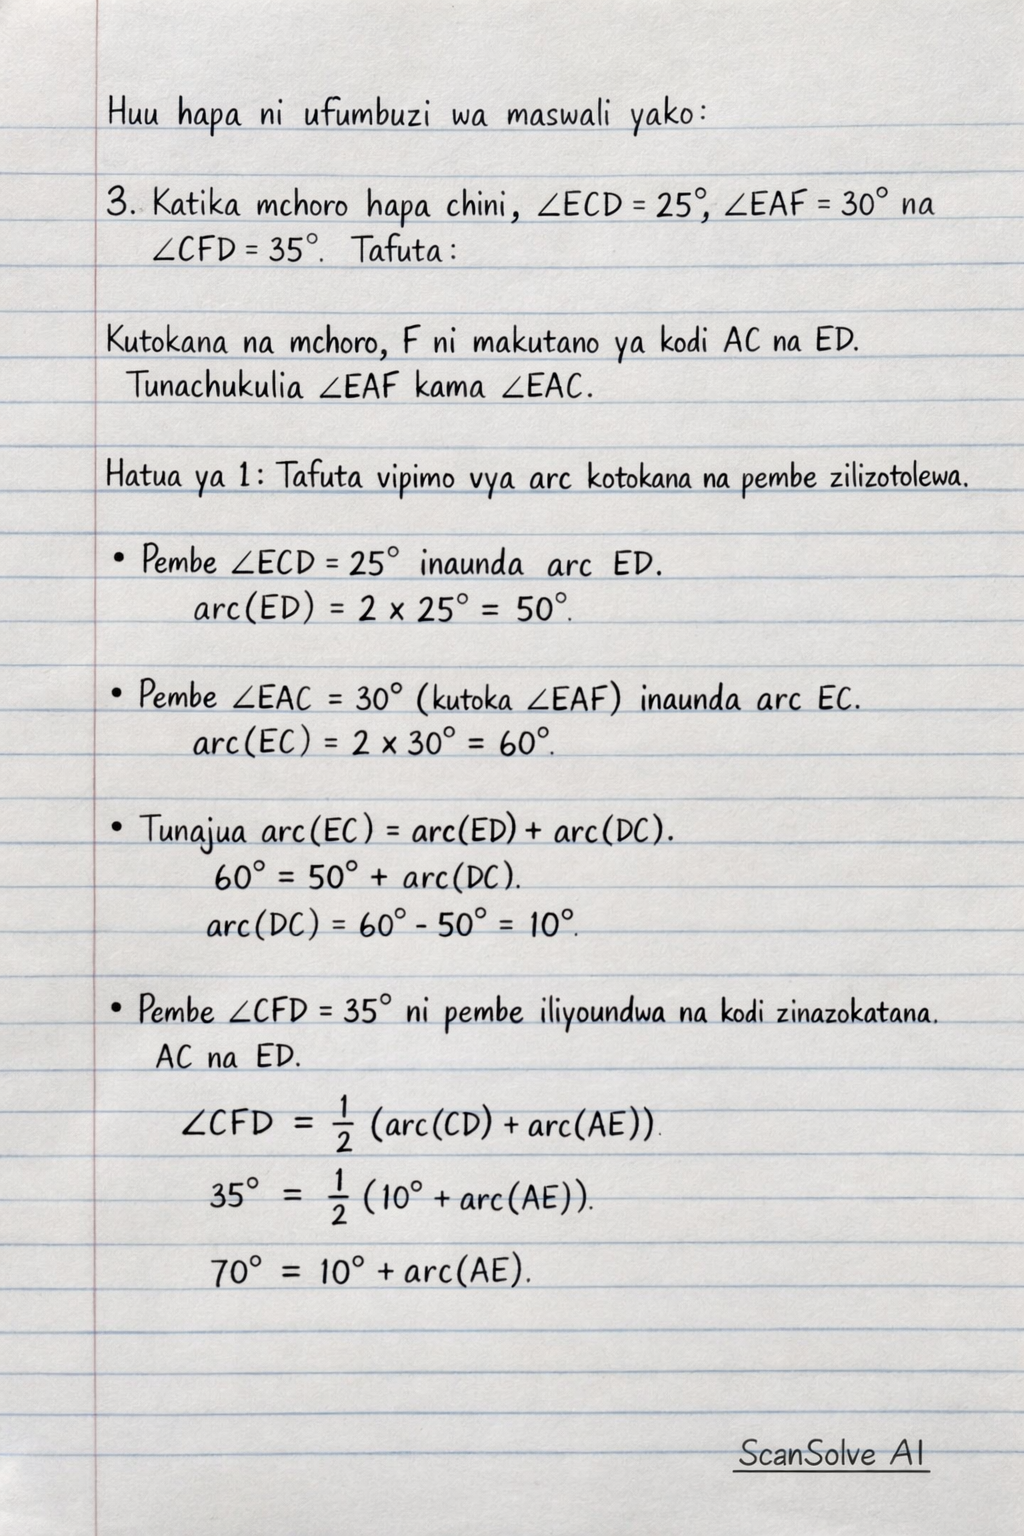 Huu hapa ni ufumbuzi wa maswali yako:
3. Katika mchoro hapa chini, ∠ECD = 25°, ∠EAF = 30° na
∠CFD = 35°. Tafuta:
Kutokana na mchoro, F ni makutano ya kodi AC na ED.
Tunachukulia ∠EAF kama ∠EAC.
Hatua ya 1: Tafuta vipimo vya arc kotokana na pembe zilizotolewa.
• Pembe ∠ECD = 25° inaunda arc ED.
arc(ED) = 2 x 25° = 50°.
• Pembe ∠EAC = 30° (kutoka ∠EAF) inaunda arc EC.
arc(EC) = 2 x 30° = 60°.
• Tunajua arc(EC) = arc(ED) + arc(DC).
60° = 50° + arc(DC).
arc(DC) = 60° - 50° = 10°.
• Pembe ∠CFD = 35° ni pembe iliyoundwa na kodi zinazokatana.
AC na ED.
∠CFD = 1/2 (arc(CD) + arc(AE)).
35° = 1/2 (10° + arc(AE)).
70° = 10° + arc(AE).
ScanSolve AI